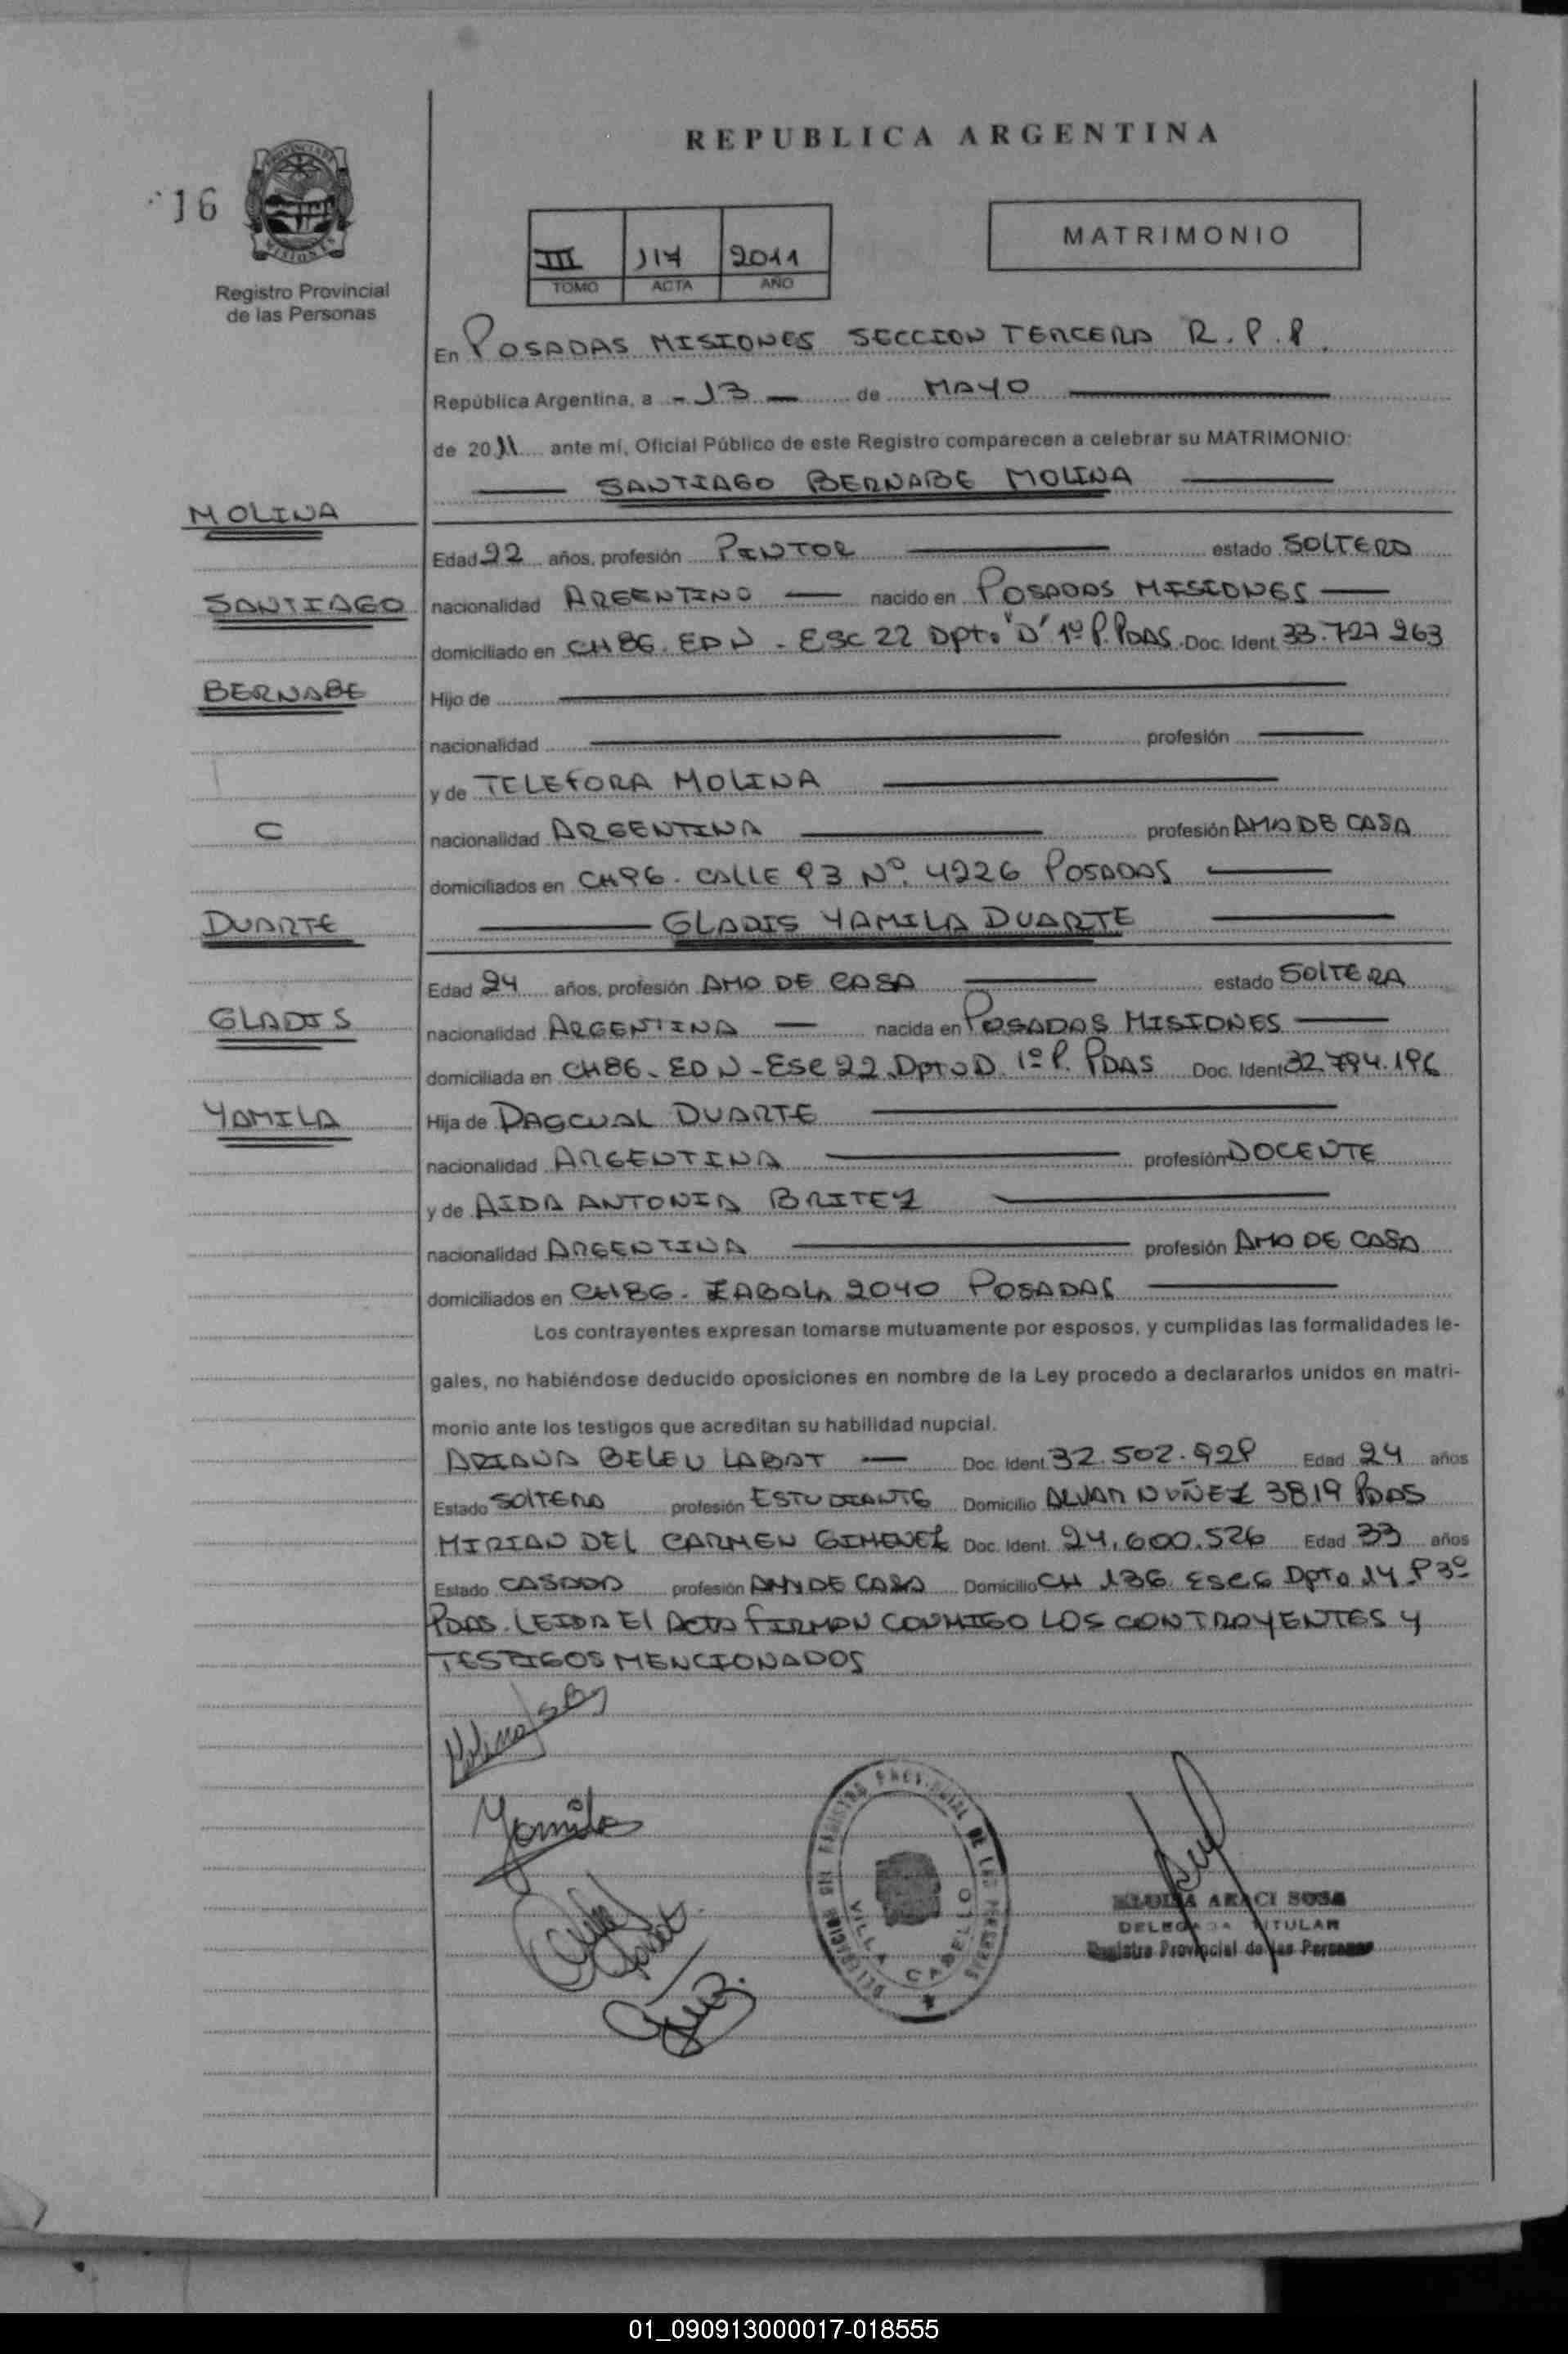 REPUBLICA ARGENTINA
16
PROVINCIA DE
MISIONES
Registro Provincial
de las Personas
III 117 2011
TOMO ACTA AÑO
MATRIMONIO
En POSADAS MISIONES SECCION TERCERA R.P.P.
República Argentina, a 13 de MAYO
de 2011 ante mí, Oficial Público de este Registro comparecen a celebrar su MATRIMONIO:
SANTIAGO BERNABE MOLINA
MOLINA
Edad 22 años, profesión PINTOR estado SOLTERO
SANTIAGO
nacionalidad ARGENTINO nacido en POSADAS MISIONES
domiciliado en CH 86. EDN - ESC 22 Dpto "D" 1º P. PDAS. Doc. Ident. 33.727 263
BERNABE
Hijo de
nacionalidad profesión
y de TELEFORA MOLINA
C
nacionalidad ARGENTINA profesión AMA DE CASA
domiciliados en CH96. CALLE 93 Nº 4226 POSADAS
DUARTE
GLADIS YAMILA DUARTE
Edad 24 años, profesión AMO DE CASA estado SOLTERA
GLADIS
nacionalidad ARGENTINA nacida en POSADAS MISIONES
domiciliada en CH86. EDN - ESC 22 Dpto D 1º P. PDAS Doc. Ident. 32.794.196
YAMILA
Hija de PASCUAL DUARTE
nacionalidad ARGENTINA profesión DOCENTE
y de AIDA ANTONIA BRITEZ
nacionalidad ARGENTINA profesión AMO DE CASA
domiciliados en CH86. ZABALA 2040 POSADAS
Los contrayentes expresan tomarse mutuamente por esposos, y cumplidas las formalidades le-
gales, no habiéndose deducido oposiciones en nombre de la Ley procedo a declararlos unidos en matri-
monio ante los testigos que acreditan su habilidad nupcial.
ARIANA BELEN LABAT Doc. Ident. 32.502.929 Edad 24 años
Estado SOLTERA profesión ESTUDIANTE Domicilio ALVAR NUÑEZ 3819 PDAS
MIRIAN DEL CARMEN GIMENEZ Doc. Ident. 24.600.526 Edad 33 años
Estado CASADA profesión AMA DE CASA Domicilio CH 136 ESC 6 Dpto 14 P 3º
PDAS. LEIDA El ACTA FIRMAN CONMIGO LOS CONTRAYENTES Y
TESTIGOS MENCIONADOS
Molina
Yamila
REGISTRO PROVINCIAL DE LAS PERSONAS
DELEGACION
VILLA CABELLO
ARACI SOSA
DELEGADA TITULAR
Registro Provincial de las Personas
01_090913000017-018555